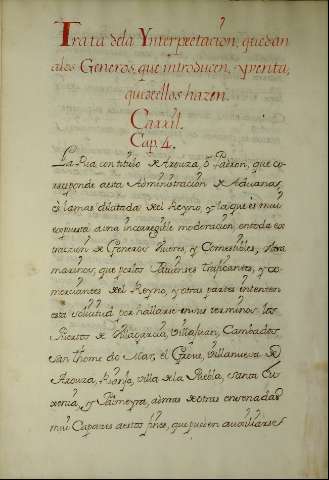 Trata dela Ynterpretacion, quedan
alos Generos, que introducen, y venta,
que de ellos hazen.
Carril.
Cap. 4.
La Ria con titulo de Arouza, ô Padron, que co-
rresponde aesta Administracion de Aduanas,
es lamas dilatada del Reyno, y la que es mui
expuesta auna incorregible moderacion, entoda ex
traccion de Generos fueres, y Comestibles, Ultra
marinos, que por los Patienses traficantes, y co-
merciantes del Reyno, y otras partes intenten
esta solicitud por hallarse en sus terminos, los
Puertos de Villagarcia, Villajuan, Cambados
San thome do Mar, el Grove, Villanueva de
Arouza, Rianjo, villa de la Puebla, Santa Eu
xenia, y Palmeyra, ademas de otras ensenadas
mui Capaces aestos fines, que pueden auxiliarse